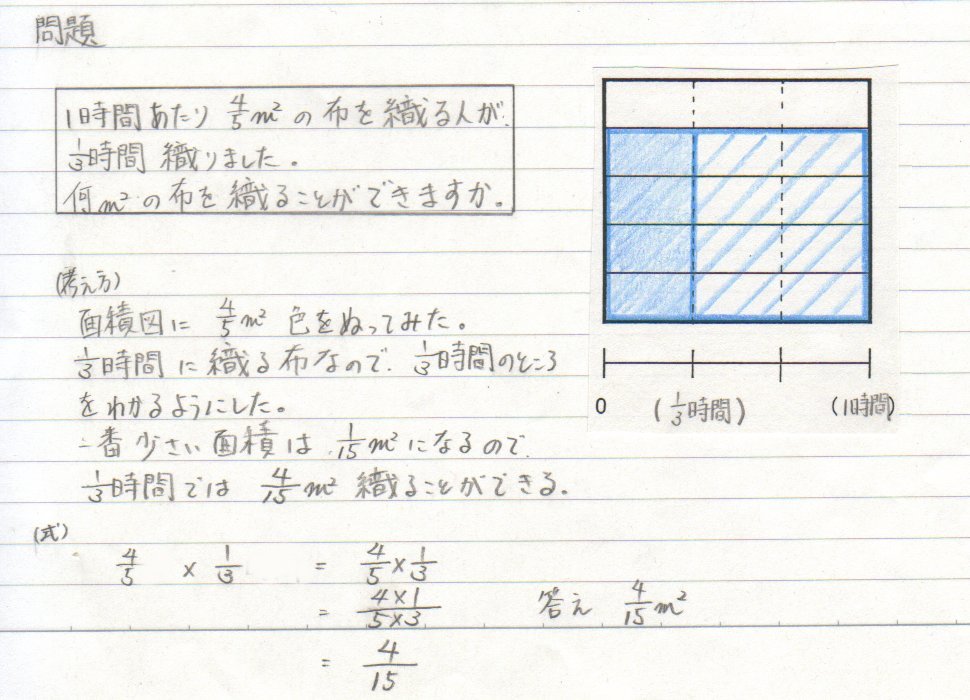 問題
1時間あたり 4/5 m² の布を織る人が、
1/3時間 織りました。
何m² の布を織ることができますか。
(考え方)
面積図に 4/5 m² 色をぬってみた。
1/3時間に織る布なので、1/3時間のところ
をわかるようにした。
一番少さい面積は、1/15 m²になるので
1/3時間では 4/15 m² 織ることができる。
0 (1/3時間) (1時間)
(式)
4/5 × 1/3 = 4/5 × 1/3
= 4×1/5×3 答え 4/15 m²
= 4/15